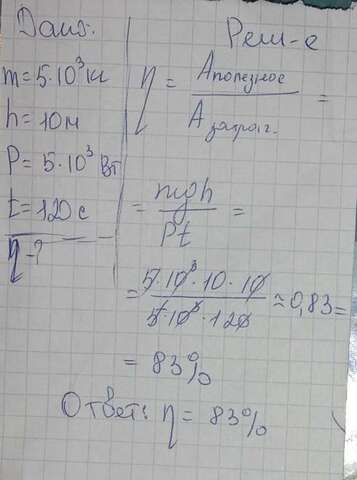 Дано:
m = 5·10³ кг
h = 10 м
P = 5·10³ Вт
t = 120 с
η - ?
Реш-е
η = Aполезное / Aзатрач. =
= mgh / Pt =
= 5·10³·10·10 / 5·10³·120 ≈ 0,83 =
= 83%
Ответ: η = 83%